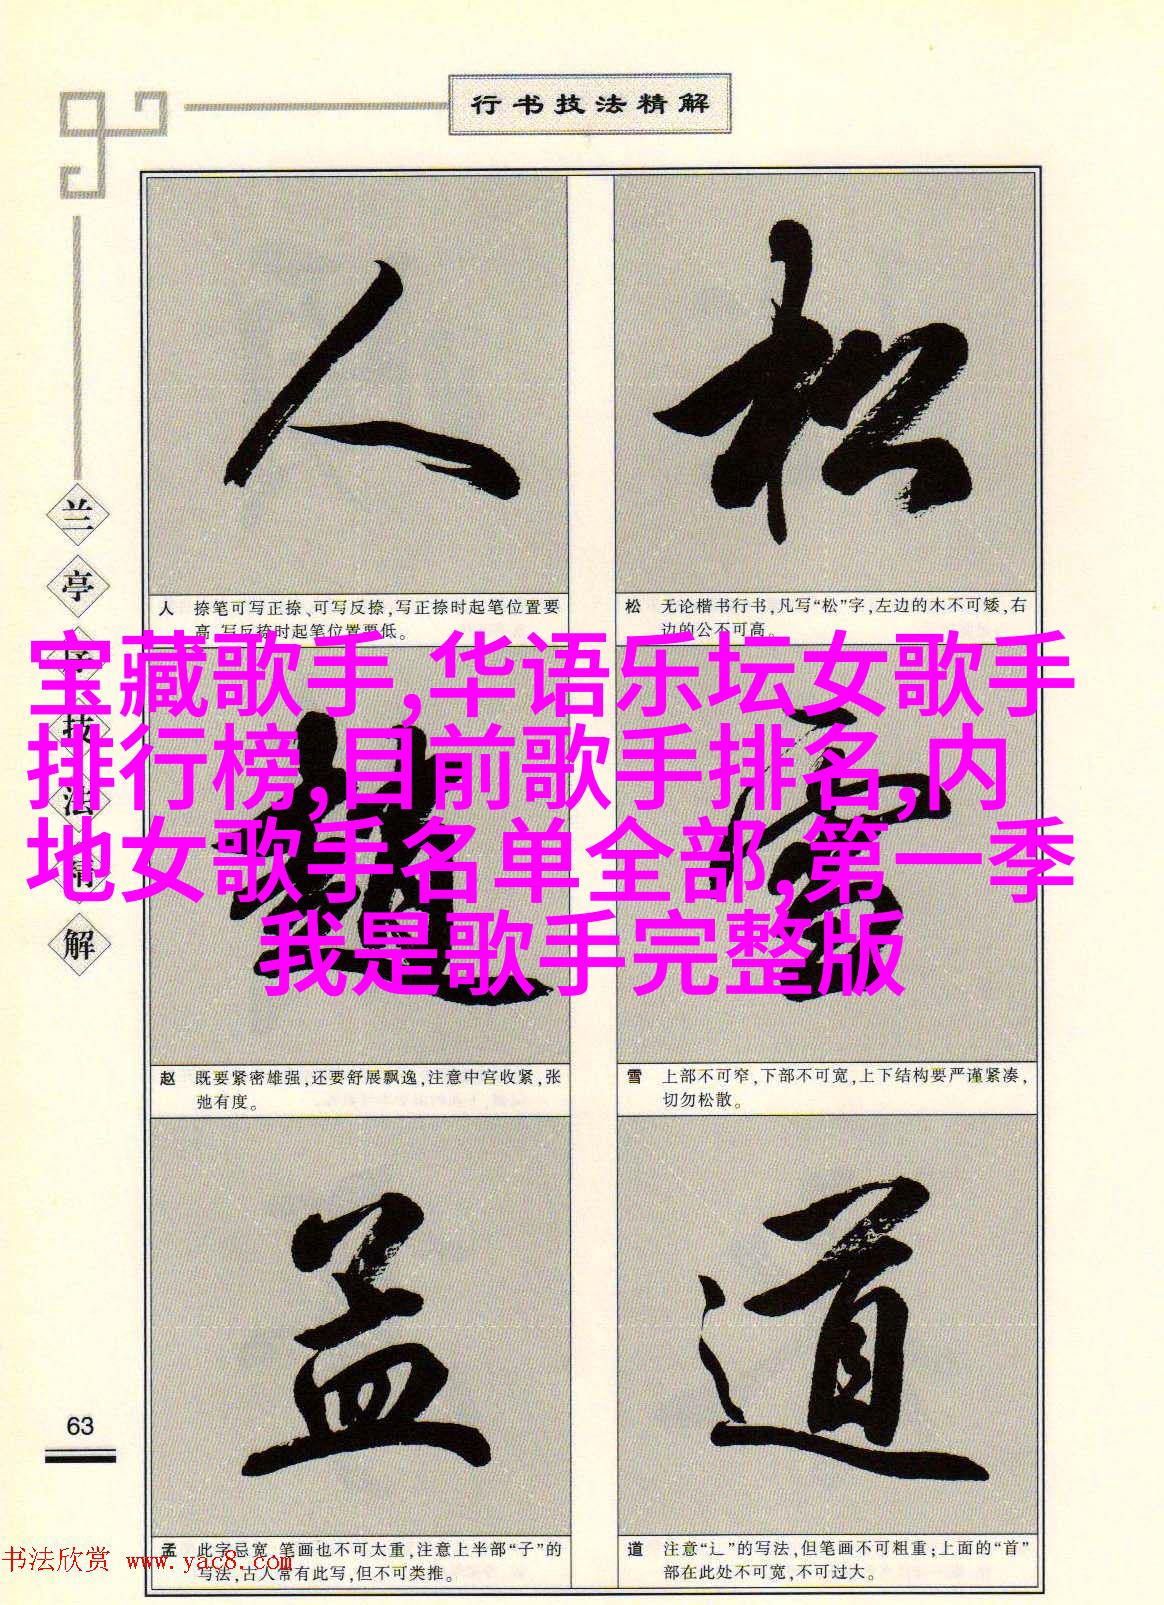 行书技法精解
兰亭序技法精解
人
松
人 捺笔可写正捺、可写反捺,写正捺时起笔位置要
高,写反捺时起笔位置要低。
松 无论楷书行书,凡写“松”字,左边的木不可矮,右
边的公不可高。
宝藏歌手,华语乐坛女歌手
排行榜,目前歌手排名,内
地女歌手名单全部,第一季
我是歌手完整版
赵
雪
赵 既要紧密雄强,还要舒展飘逸,注意中宫收紧,张
弛有度。
雪 上部不可窄,下部不可宽,上下结构要严谨紧凑,
切勿松散。
孟
道
孟 此字忌宽,笔画也不可太重,注意上半部“子”的
写法,古人常有此写,但不可类推。
道 注意“辶”的写法,但笔画不可粗重;上面的“首”
部在此处不可宽,不可过大。
63
书法欣赏 www.yac8.com